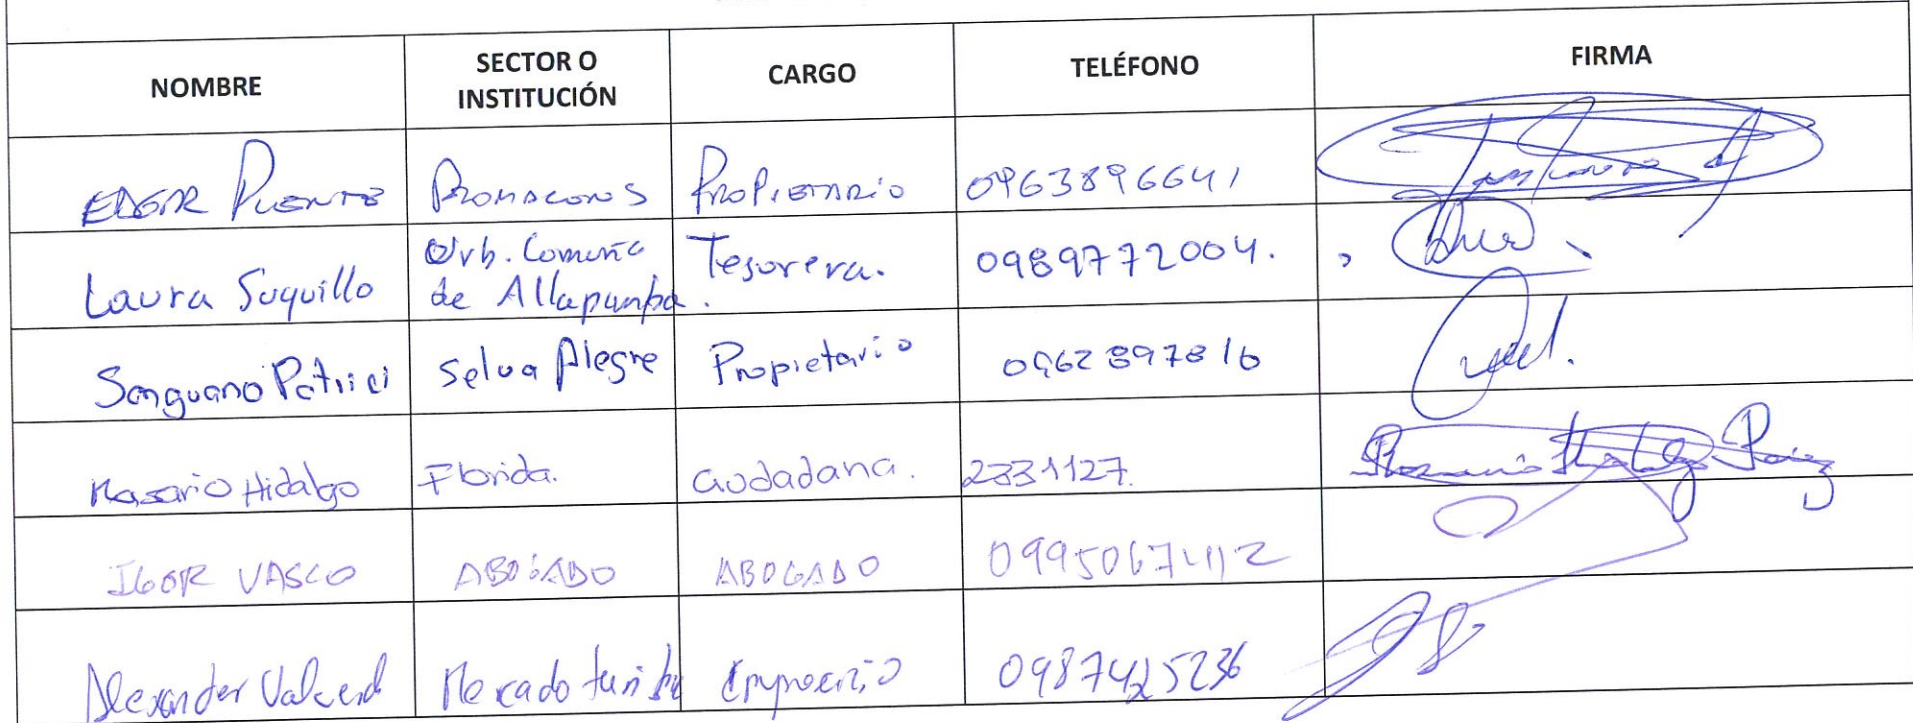 NOMBRE SECTOR O INSTITUCIÓN CARGO TELÉFONO FIRMA
EDGAR PUENTE PROMACONS PROPIETARIO 0963896641
Laura Suquillo Urb. Comuna de Allapamba. Tesorera. 0989772004.
Sanguano Patrici Selva Alegre Propietario 0962897816
Rosario Hidalgo Florida. Ciudadana. 2331127. Rosario Hidalgo Paez
IGOR VASCO ABOGADO ABOGADO 0995067412
Alexander Valverd Mercado